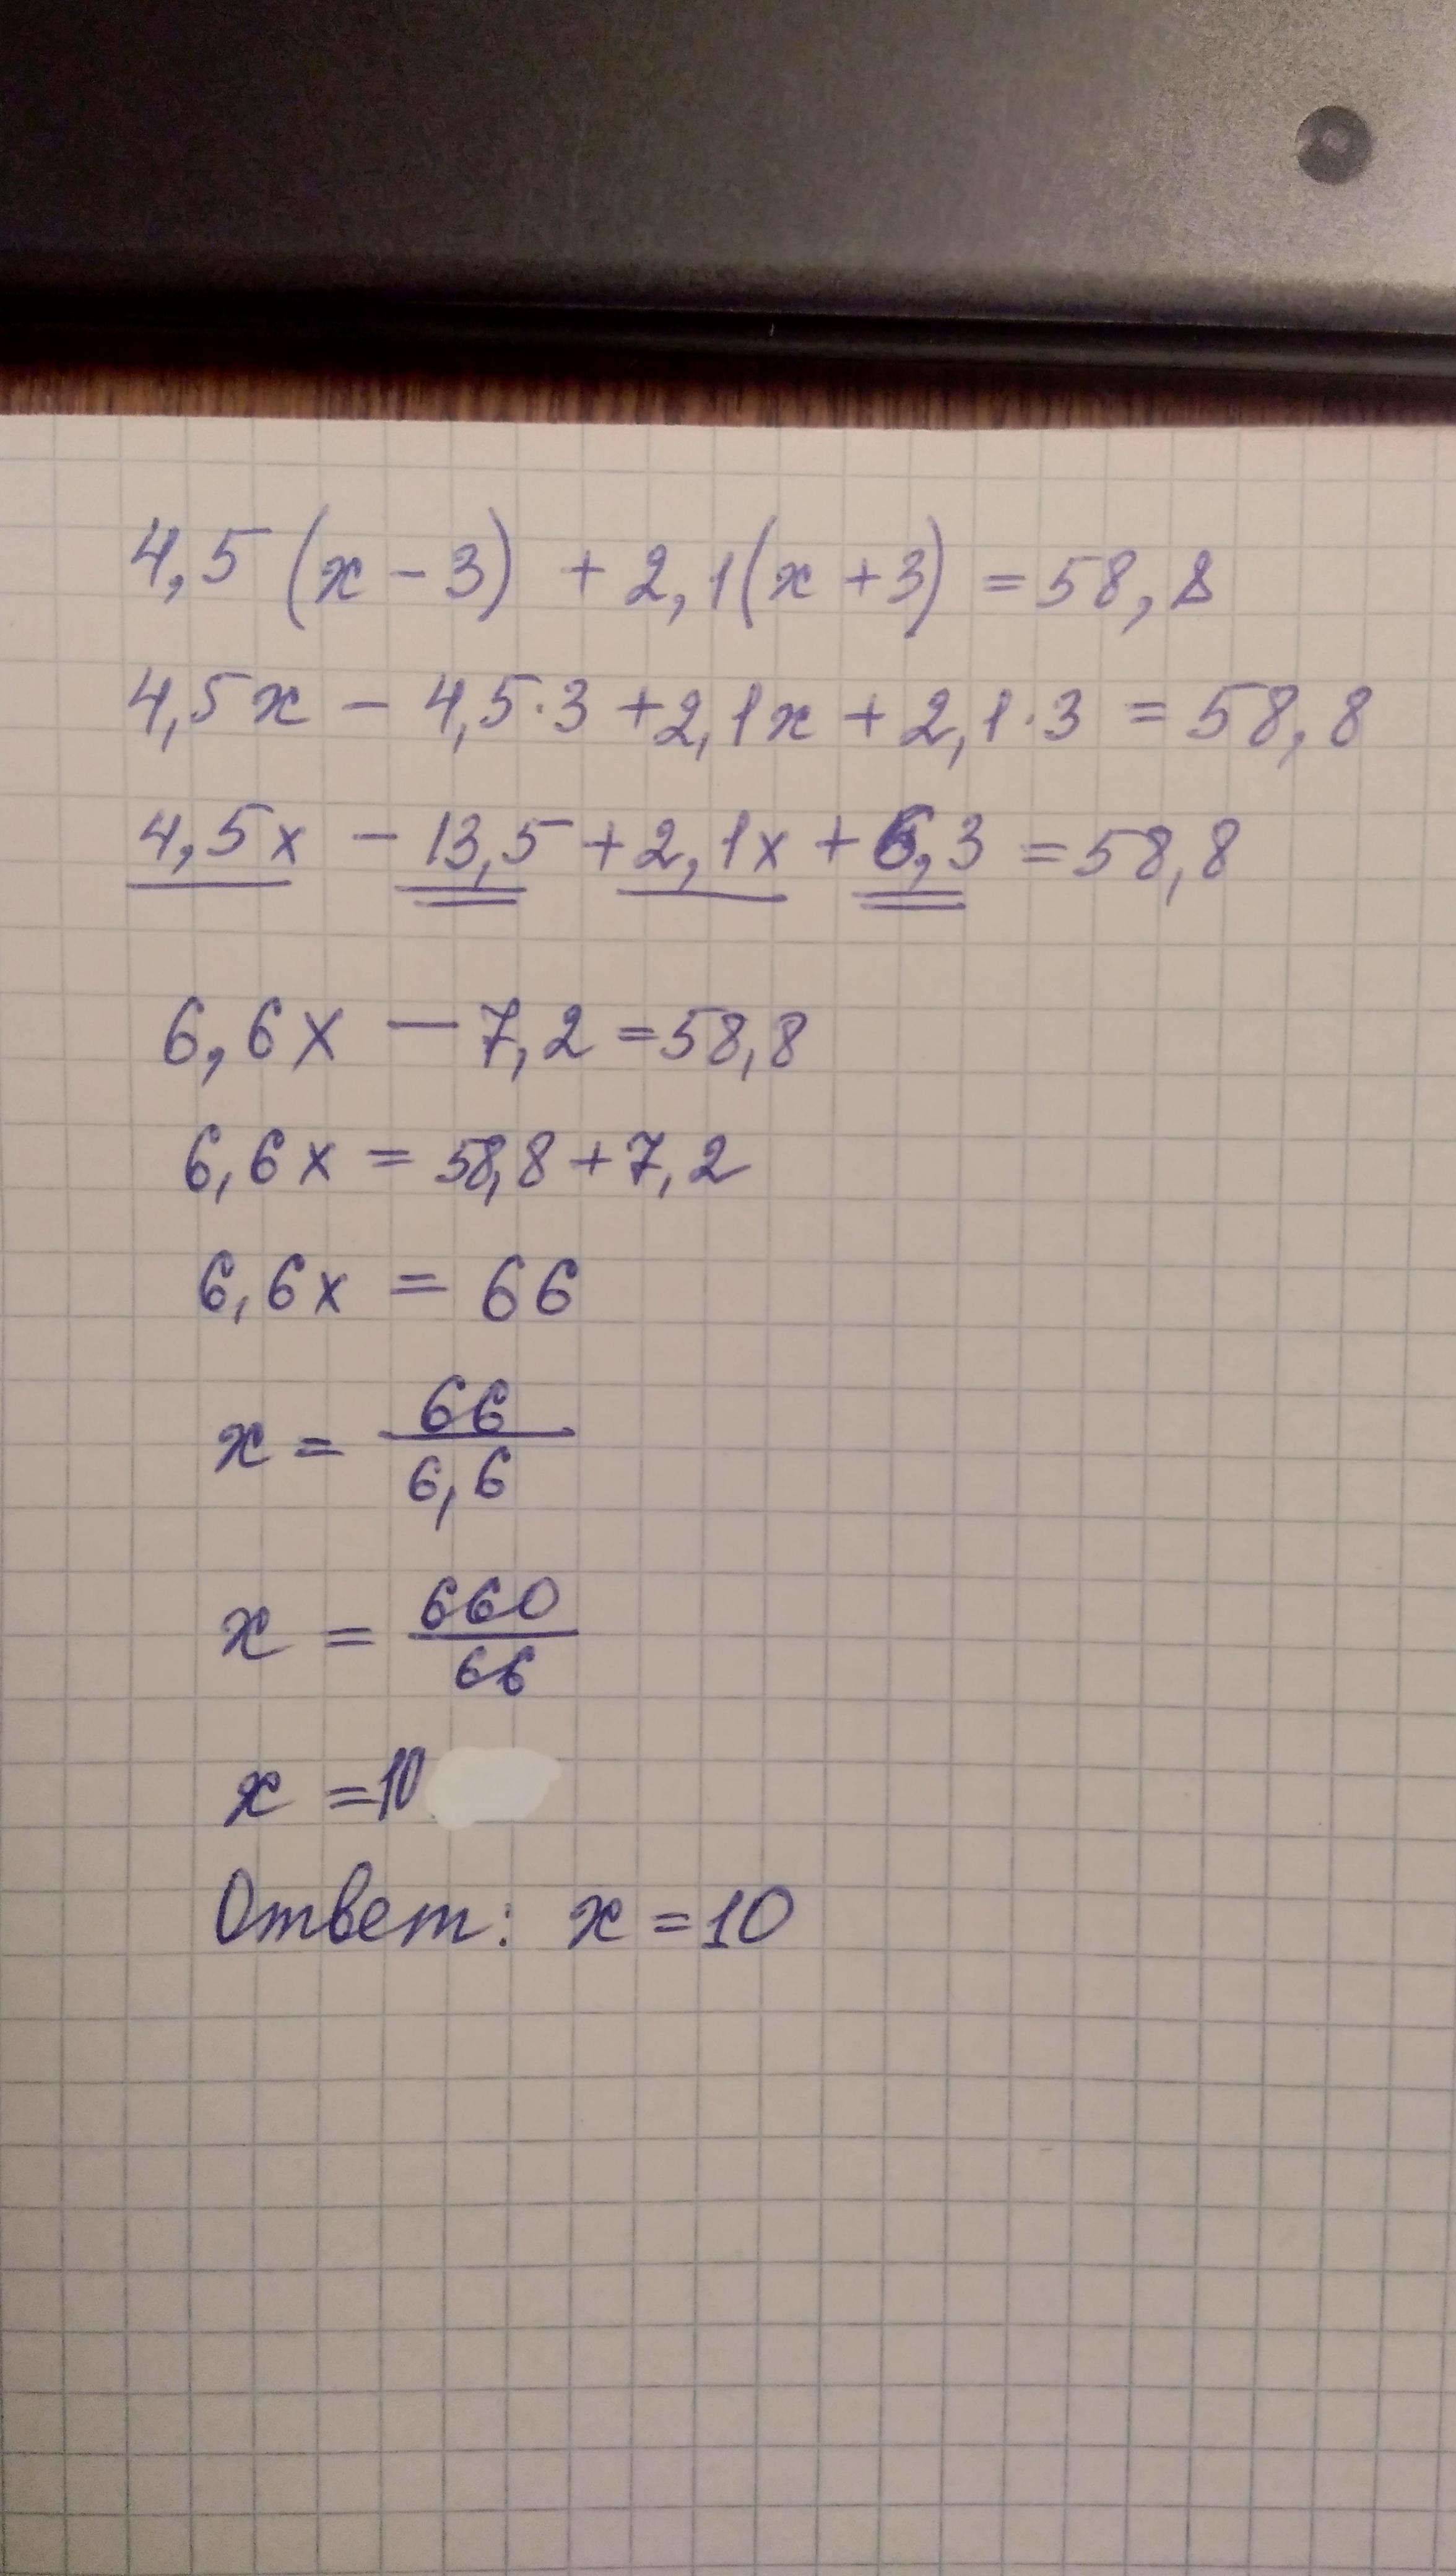 4,5(x-3) + 2,1(x+3) = 58,8
4,5x - 4,5·3 + 2,1x + 2,1·3 = 58,8
4,5x - 13,5 + 2,1x + 6,3 = 58,8
6,6x - 7,2 = 58,8
6,6x = 58,8 + 7,2
6,6x = 66
x = 66/6,6
x = 660/66
x = 10
Ответ: x = 10